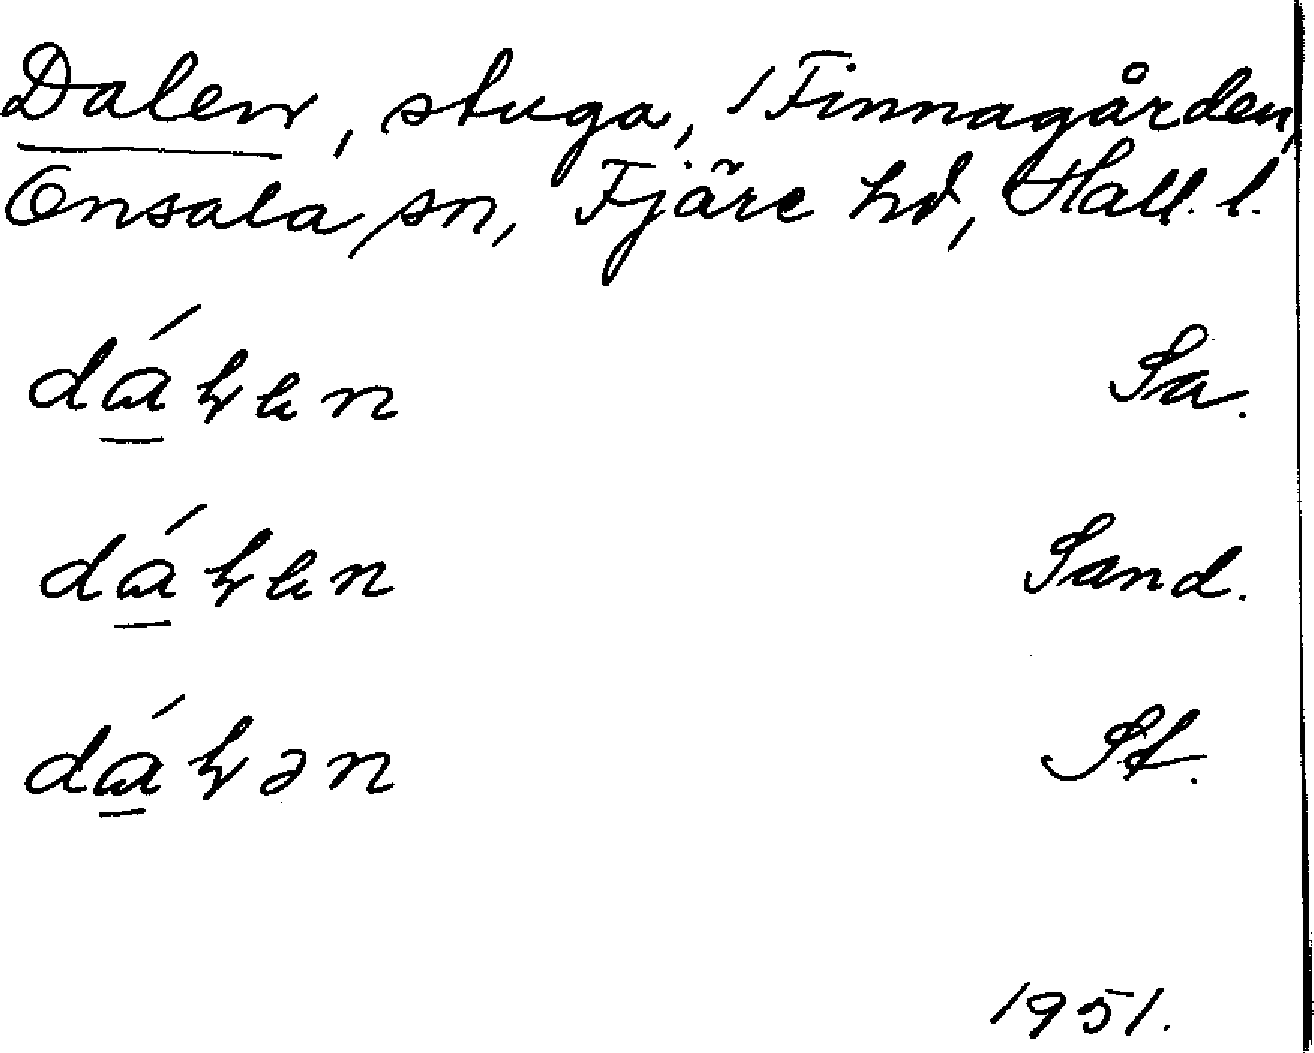 Dalen, stuga, 1 Finnagården,
Onsala sn, Fjäre hd, Hall. l.
dálɐn Sa.
dálɐn Sand.
dálən St.
1951.